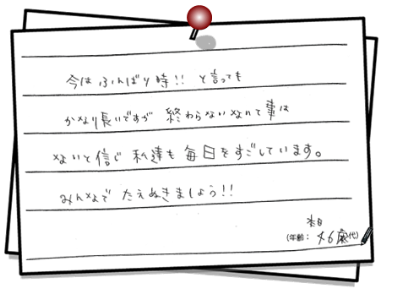 今はふんばり時!! と言っても
かなり長いですが 終わらないなんて事は
ないと信じ 私達も毎日をすごしています。
みんなで たえぬきましょう!!
(年齢: 46歳代)